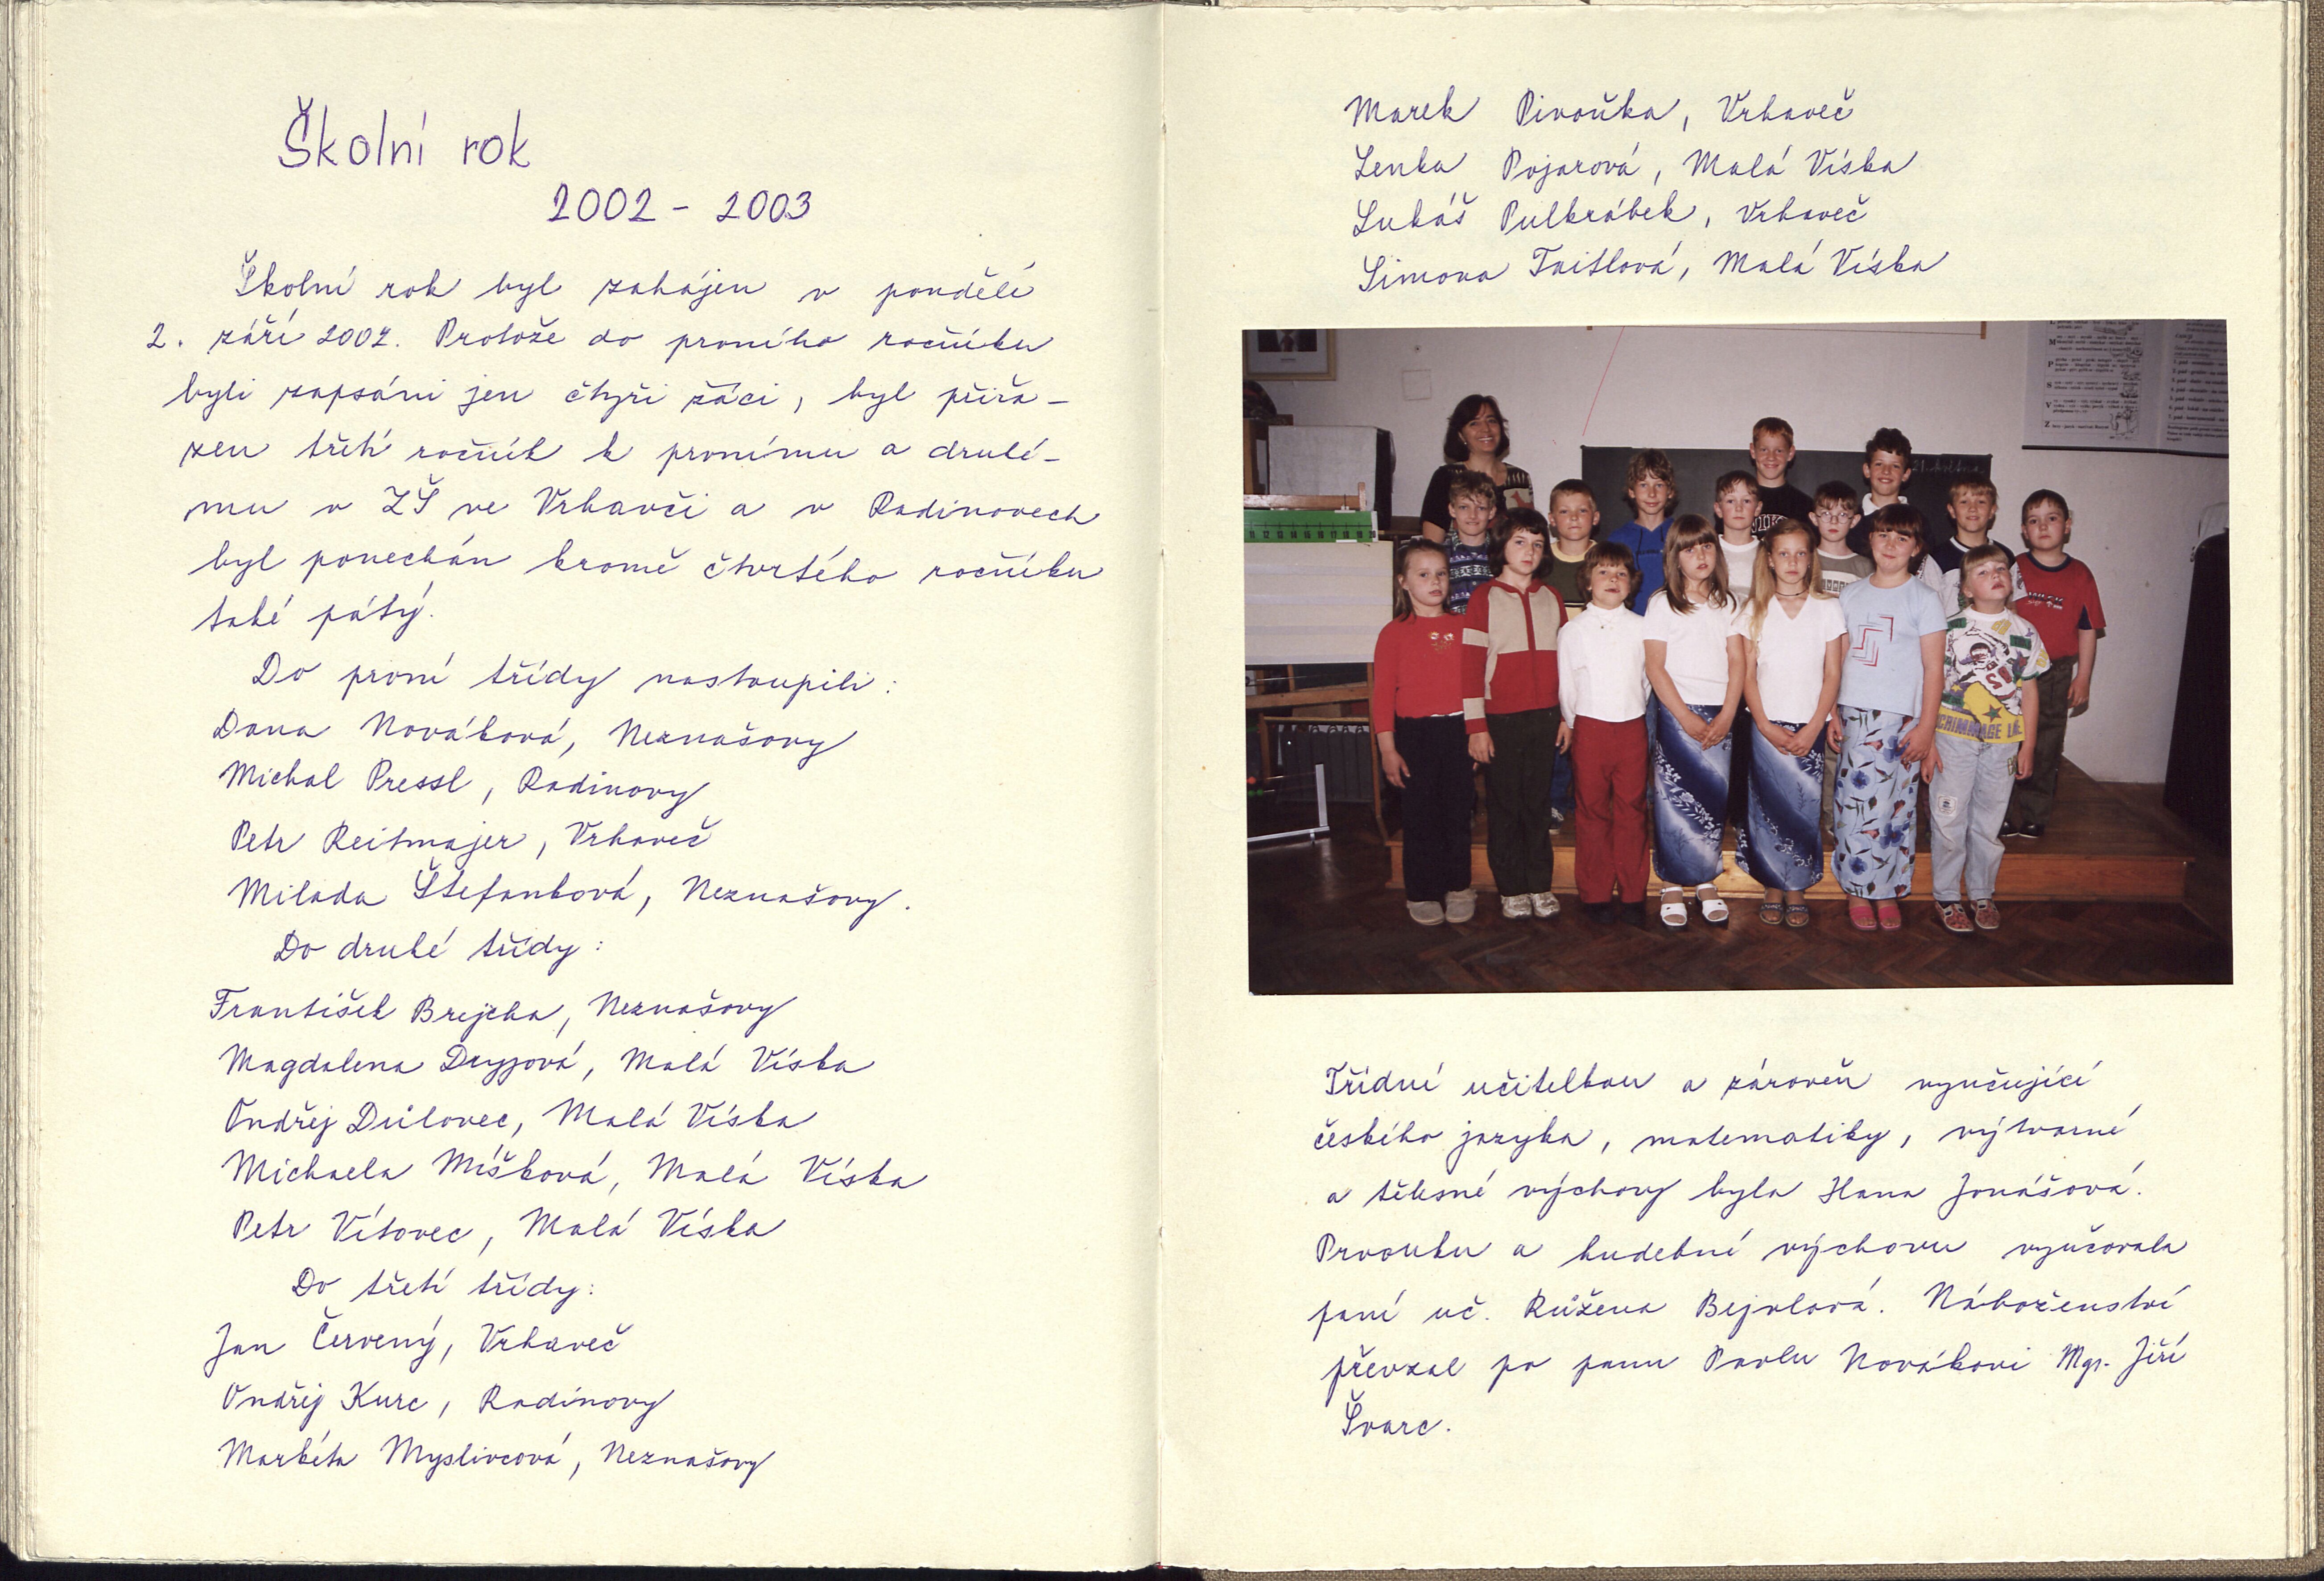 Školní rok
2002 - 2003
Školní rok byl zahájen v pondělí
2. září 2002. Protože do prvního ročníku
byli zapsáni jen čtyři žáci, byl přiřa-
zen třetí ročník k prvnímu a druhé-
mu v ZŠ ve Vrhavči a v Radinovech
byl ponechán kromě čtvrtého ročníku
také pátý.
Do první třídy nastoupili:
Dana Nováková, Neznašovy
Michal Pressl, Radinovy
Petr Reitmajer, Vrhaveč
Milada Štefanková, Neznašovy.
Do druhé třídy:
František Brejcha, Neznašovy
Magdalena Dryjová, Malá Víska
Ondřej Důlovec, Malá Víska
Michaela Míšková, Malá Víska
Petr Vítovec, Malá Víska
Do třetí třídy:
Jan Červený, Vrhaveč
Ondřej Kurc, Radinovy
Markéta Myslivcová, Neznašovy
Marek Pivoňka, Vrhaveč
Lenka Pojarová, Malá Víska
Lukáš Pulkrábek, Vrhaveč
Simona Taitlová, Malá Víska
21. května
NIKE
Třídní učitelkou a zároveň vyučující
českého jazyka, matematiky, výtvarné
a tělesné výchovy byla Hana Jonášová.
Prvouku a hudební výchovu vyučovala
paní uč. Růžena Bejvlová. Náboženství
převzal po panu Pavlu Novákovi Mgr. Jiří
Švarc.